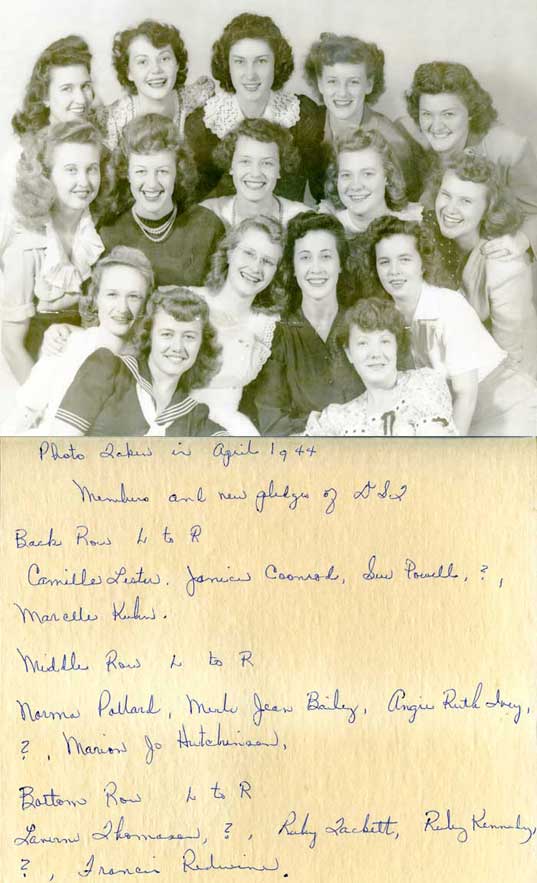 Photo Taken in April 1944
Members and new pledges of
Back Row L to R
Camille Lester, Janice Coonrod, Sue Powell, ?,
Marcelle Kuhn.
Middle Row L to R
Norma Pollard, Merle Jean Bailey, Angie Ruth Ivey,
?, Marion Jo Hutchinson,
Bottom Row L to R
Laverne Thomason, ?, Ruby Tackett, Ruby Kennedy,
?, Francis Redwine.